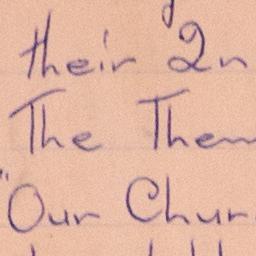 their 2n
The Them
"Our Chur